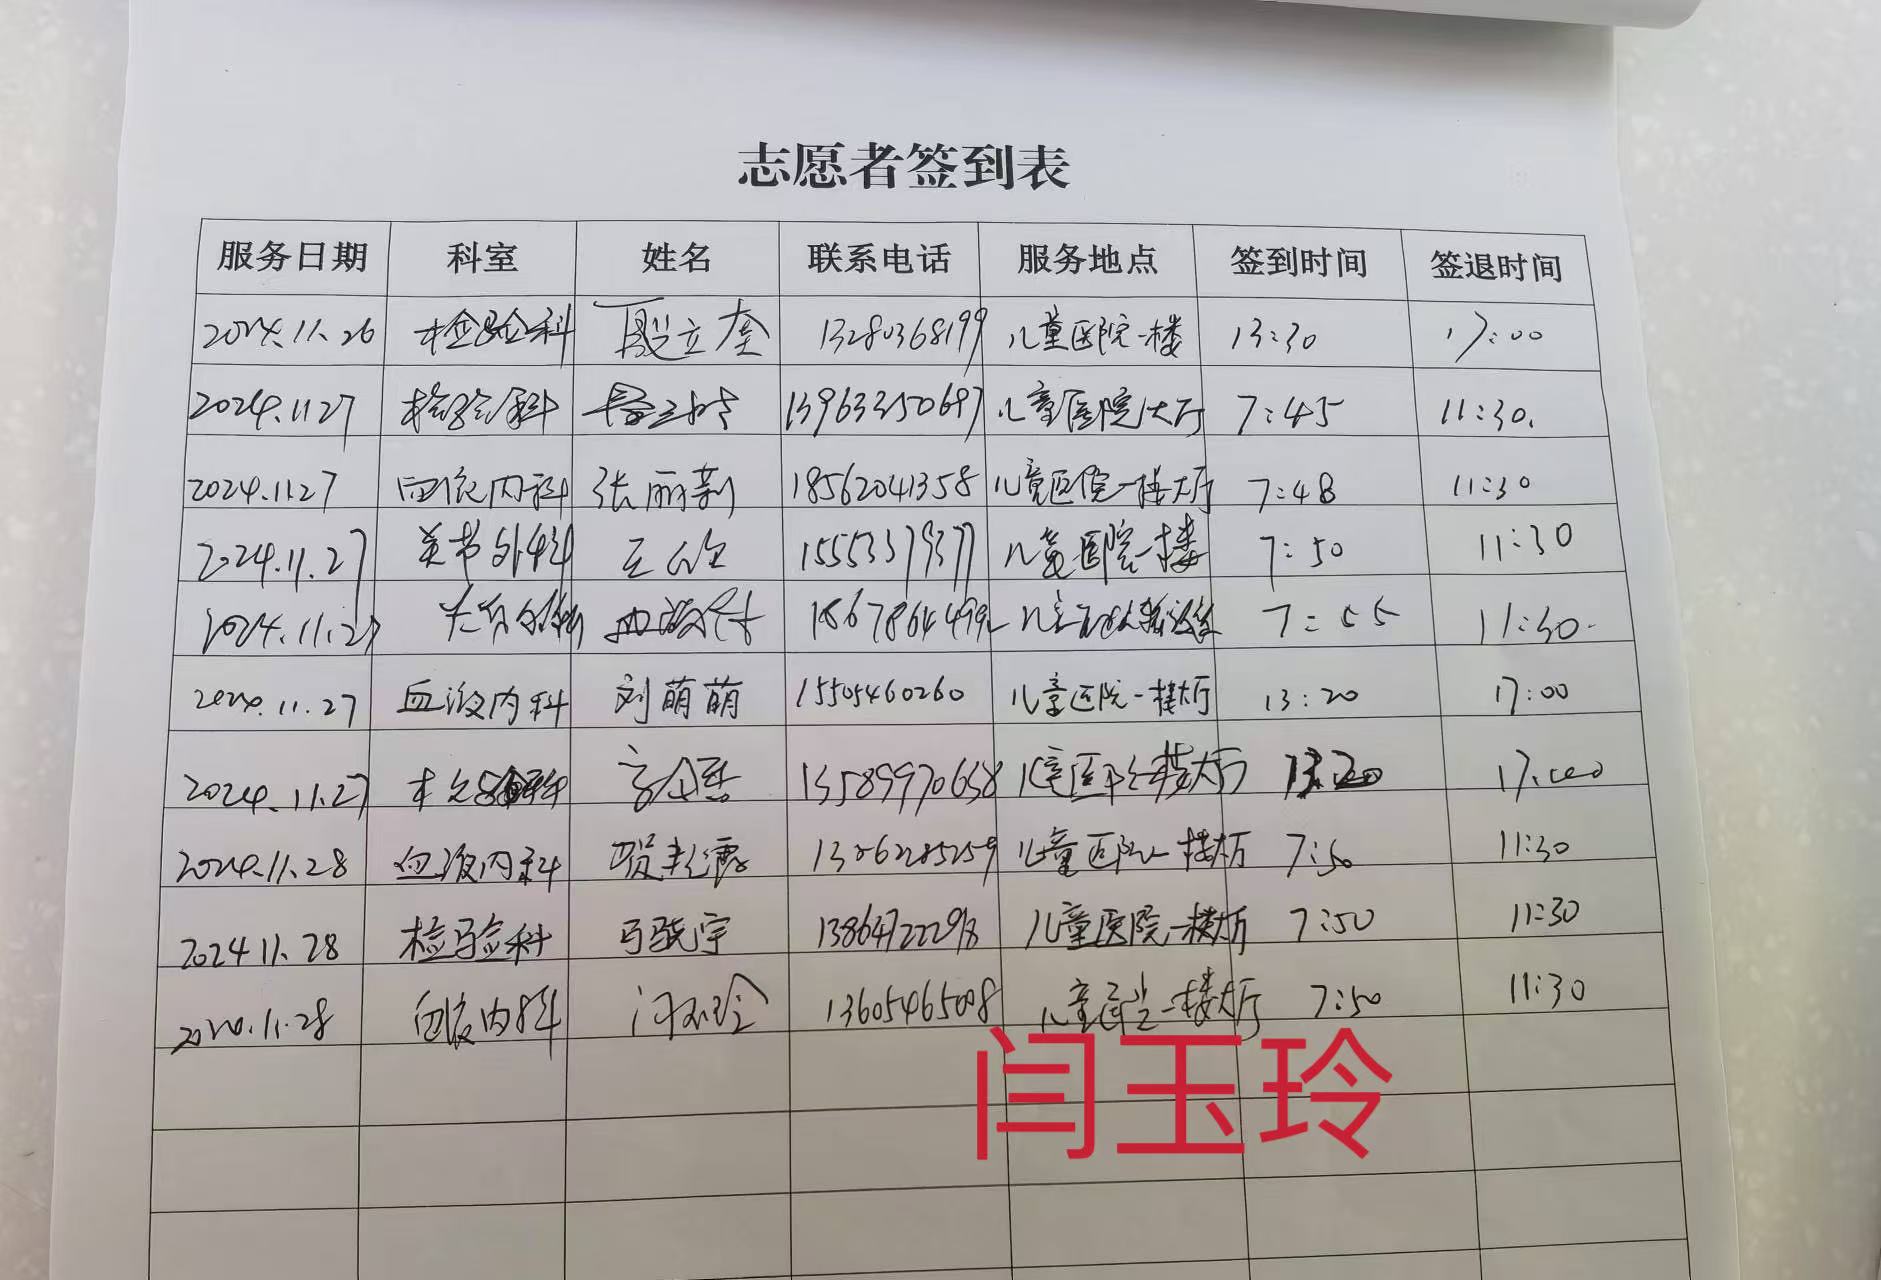 志愿者签到表
服务日期 科室 姓名 联系电话 服务地点 签到时间 签退时间
2024.11.26 检验科 聂立奎 13280368199 儿童医院一楼 13:30 17:00
2024.11.27 检验科 13963350697 儿童医院大厅 7:45 11:30.
2024.11.27 血液内科 张丽莉 18562041358 儿童医院一楼大厅 7:48 11:30
2024.11.27 关节外科 15553379377 儿童医院一楼 7:50 11:30
2024.11.27 7:55 11:30.
2024.11.27 血液内科 刘萌萌 15505460260 儿童医院一楼大厅 13:20 17:00
2024.11.27 检验科 13589970638 儿童医院一楼大厅 13:20 17:00
2024.11.28 血液内科 13062285259 儿童医院一楼大厅 7:50 11:30
2024 11.28 检验科 马骁宇 儿童医院一楼大厅 7:50 11:30
2024.11.28 血液内科 闫玉玲 13605465008 儿童医院一楼大厅 7:50 11:30
闫玉玲